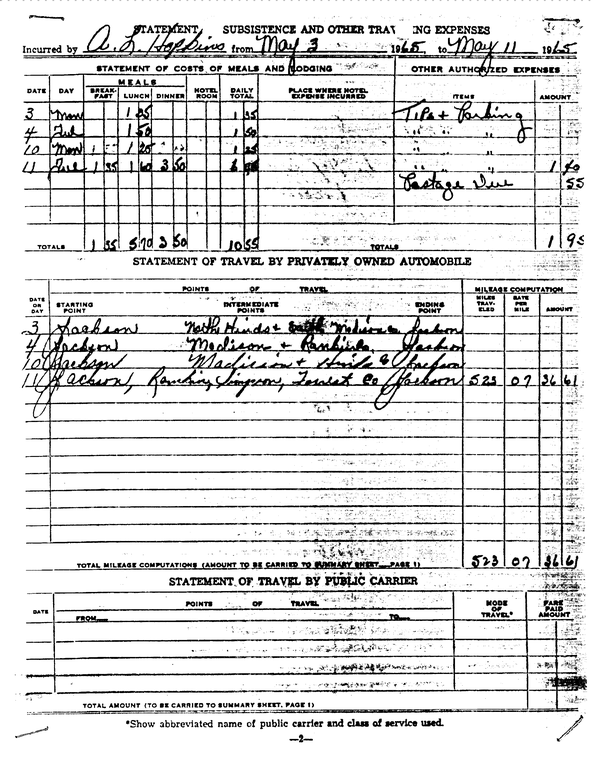 STATEMENT SUBSISTENCE AND OTHER TRAV NG EXPENSES
Incurred by A. L. Hopkins from May 3 1965, to May 11 1965
STATEMENT OF COSTS OF MEALS AND LODGING OTHER AUTHORIZED EXPENSES
DATE DAY MEALS HOTEL ROOM DAILY TOTAL PLACE WHERE HOTEL EXPENSE INCURRED ITEMS AMOUNT
BREAK-FAST LUNCH DINNER
3 Mon 1 35 1 35 Tips & Parking
4 Tue 1 50 1 50 " "
10 Mon 1 25 1 25 " "
11 Tue 1 35 1 60 3 50 6 " " 1 40
Postage Due 55
TOTALS 1 35 5 70 3 50 10 55 TOTALS 1 95
STATEMENT OF TRAVEL BY PRIVATELY OWNED AUTOMOBILE
DATE OR DAY POINTS OF TRAVEL MILEAGE COMPUTATION
STARTING POINT INTERMEDIATE POINTS ENDING POINT MILES TRAV-ELED RATE PER MILE AMOUNT
3 Jackson North Hinds & Madison Jackson
4 Jackson Madison & Jackson
10 Jackson Madison & Hinds Jackson
11 Jackson, Rankin, Simpson, Forrest Co Jackson 523 07 36 61
TOTAL MILEAGE COMPUTATIONS (AMOUNT TO BE CARRIED TO SUMMARY SHEET PAGE 1) 523 07 36 61
STATEMENT OF TRAVEL BY PUBLIC CARRIER
DATE POINTS OF TRAVEL MODE OF TRAVEL* FARE PAID AMOUNT
FROM TO
TOTAL AMOUNT (TO BE CARRIED TO SUMMARY SHEET, PAGE 1)
*Show abbreviated name of public carrier and class of service used.
—2—